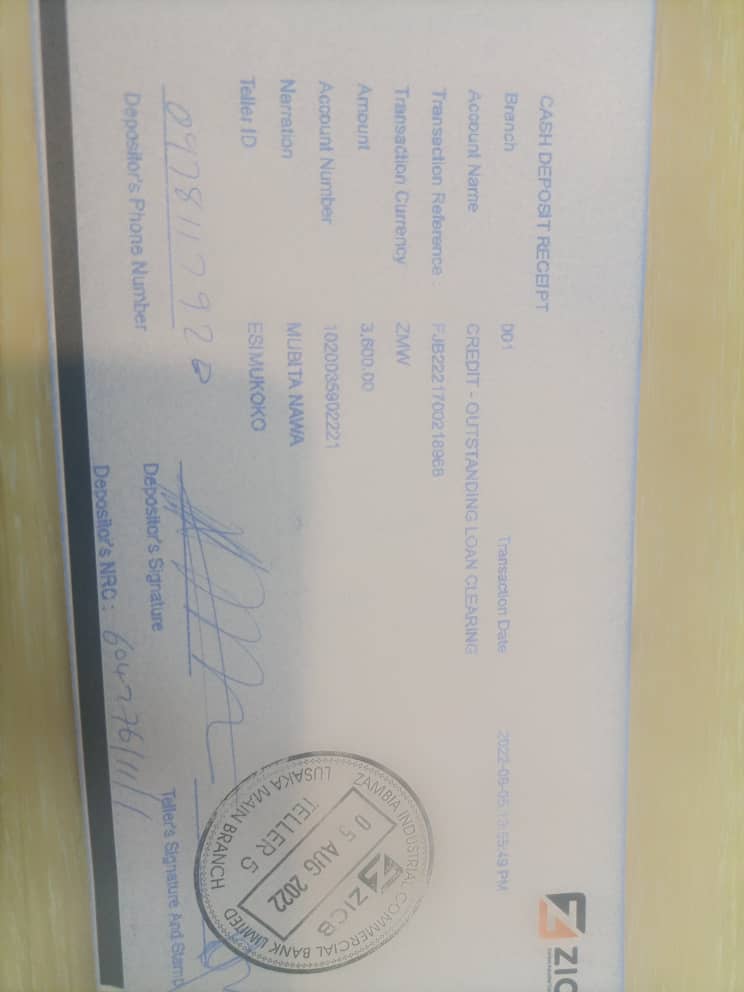 ZIC
CASH DEPOSIT RECEIPT
Branch 001 Transaction Date
Account Name CREDIT - OUTSTANDING LOAN CLEARING
Transaction Reference : FJB2221700218968
Transaction Currency ZMW
Amount 3,600.00
Account Number 1020035902221
Narration MUBITA NAWA
Teller ID ESIMUKOKO
Depositor's Phone Number
Depositor's Signature
Teller's Signature And Stamp
Depositor's NRC : 604776/11/1
ZAMBIA INDUSTRIAL COMMERCIAL BANK LIMITED
ZICB
05 AUG 2022
TELLER 5
LUSAKA MAIN BRANCH